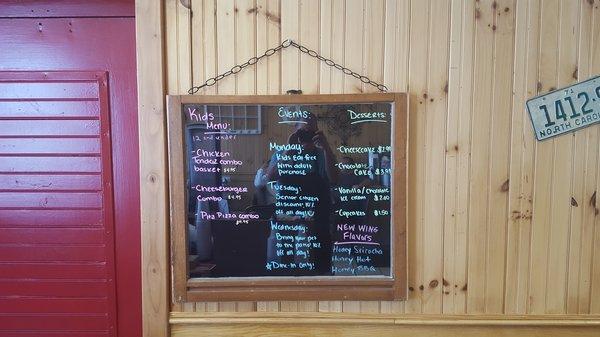 Kids
Menu:
12 and under
-Chicken
Tender combo
basket $4.95
-Cheeseburger
Combo $4.95
-Pita Pizza combo
$4.95
Events:
Monday:
Kids Eat free
with adult
purchase
Tuesday:
Senior citizen
discount 10%
off all day!
Wednesday:
Bring your pet
to the patio 10%
off all day!
*Dine-In Only!
Desserts:
-Cheesecake
-Chocolate
Cake
-Vanilla/Chocolate
ice cream $2.00
-Cupcakes $1.50
NEW WING
Flavors
Honey Sriracha
Honey Hot
Honey BBQ
71
1412
NORTH CAROL